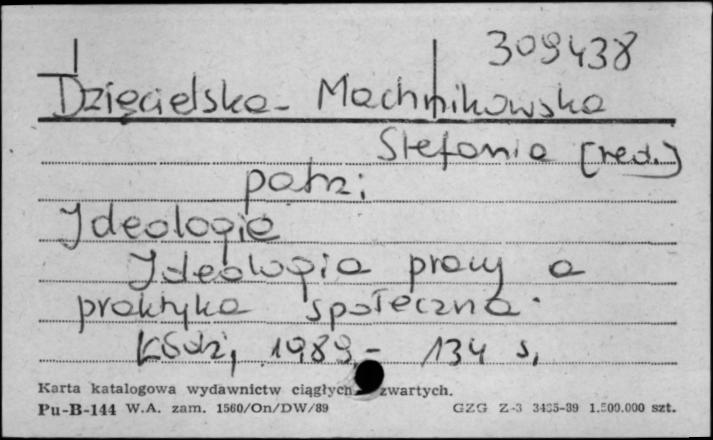 309438
Dzięcielska-Machnikowska
Stefania [red.]
patrz:
Ideologia
Ideologia pracy a
praktyka społeczna.
Łódź, 1989.- 134 s,
Karta katalogowa wydawnictw ciągłych zwartych.
Pu-B-144 W.A. zam. 1560/On/DW/89 GZG Z-3 3435-89 1.500.000 szt.